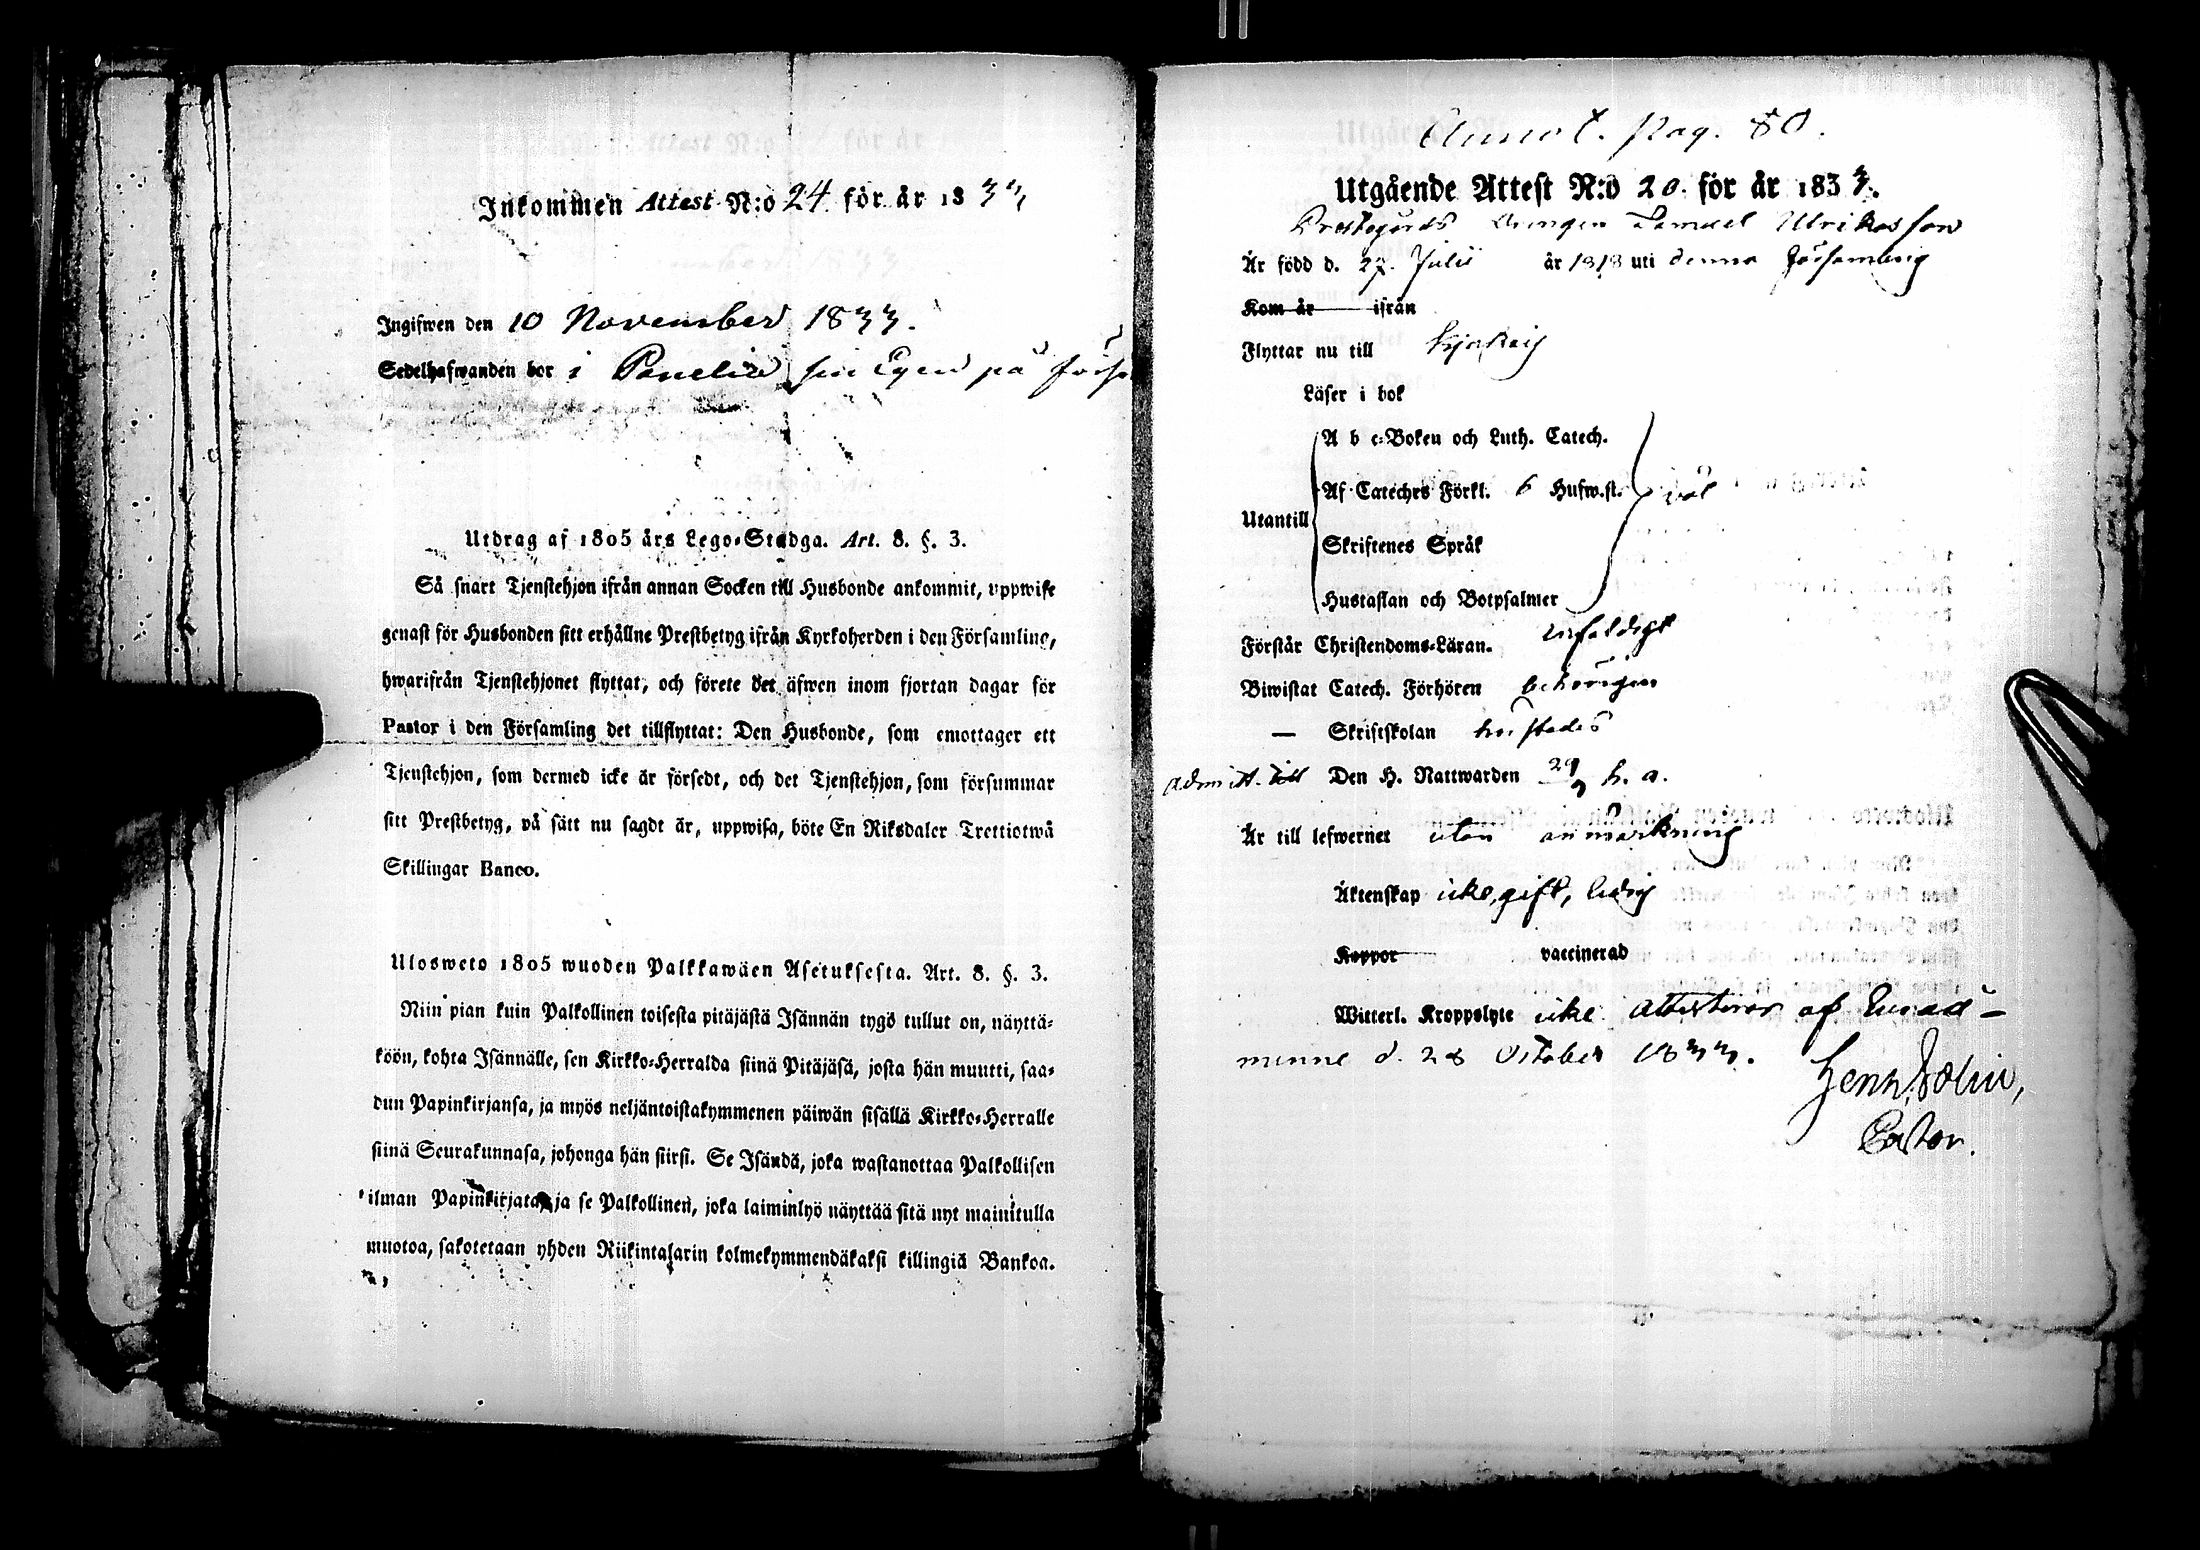 Inkommen Attest N:o 24. för år 1833
Ingifwen den 10 November 1833.
Sedelhafwanden bor i Panelia på
Utdrag af 1805 års Lego-Stadga. Art. 8. §. 3.
Så snart Tjenstehjon ifrån annan Socken till Husbonde ankommit, uppwise
genast för Husbonden sitt erhållne Prestbetyg ifrån Kyrkoherden i den Församling,
hwarifrån Tjenstehjonet flyttat, och förete det äfwen inom fjortan dagar för
Pastor i den Församling det tillflyttat: Den Husbonde, som emottager ett
Tjenstehjon, som dermed icke är försedt, och det Tjenstehjon, som försummar
sitt Prestbetyg, på sätt nu sagdt är, uppwisa, böte En Riksdaler Trettiotwå
Skillingar Banco.
Ulosweto 1805 wuoden Palkkawäen Asetuksesta. Art. 8. §. 3.
Niin pian kuin Palkollinen toisesta pitäjästä Isännän tygö tullut on, näyttä-
köön, kohta Isännälle, sen Kirkko-Herralda siinä Pitäjäsä, josta hän muutti, saa-
dun Papinkirjansa, ja myös neljäntoistakymmenen päiwän sisällä Kirkko-Herralle
siinä Seurakunnasa, johonga hän siirsi. Se Isändä, joka wastanottaa Palkollisen
ilman Papinkirjata, ja se Palkollinen, joka laiminlyö näyttää sitä nyt mainitulla
muotoa, sakotetaan yhden Riikintalarin kolmekymmendäkaksi killingiä Bankoa.
Annot. Pag. 80.
Utgående Attest N:o 20. för år 1833.
Prestegårds Drengen Samuel Ulriksson
Är född d. 27. Julii år 1818 uti denna Församling
Kom år ifrån
Flyttar nu till Kjukais
Läser i bok
A b c-Boken och Luth. Catech.
Af Catechis Förkl. 6 Hufw.st. väl
Utantill
Skriftenes Språk
Hustaflan och Botpsalmer
Förstår Christendoms-Läran. enfaldigt
Biwistat Catech. Förhören behörigen
— Skriftskolan härstädes
admitt. till Den H. Nattwarden 29/9 h. a.
Är till lefwernet utan anmärkning
Äktenskap icke gift, ledig
Koppor vaccinerad
Witterl. Kroppslyte icke. Attesterar af Eurad-
minne d. 28 October 1833.
Pastor.